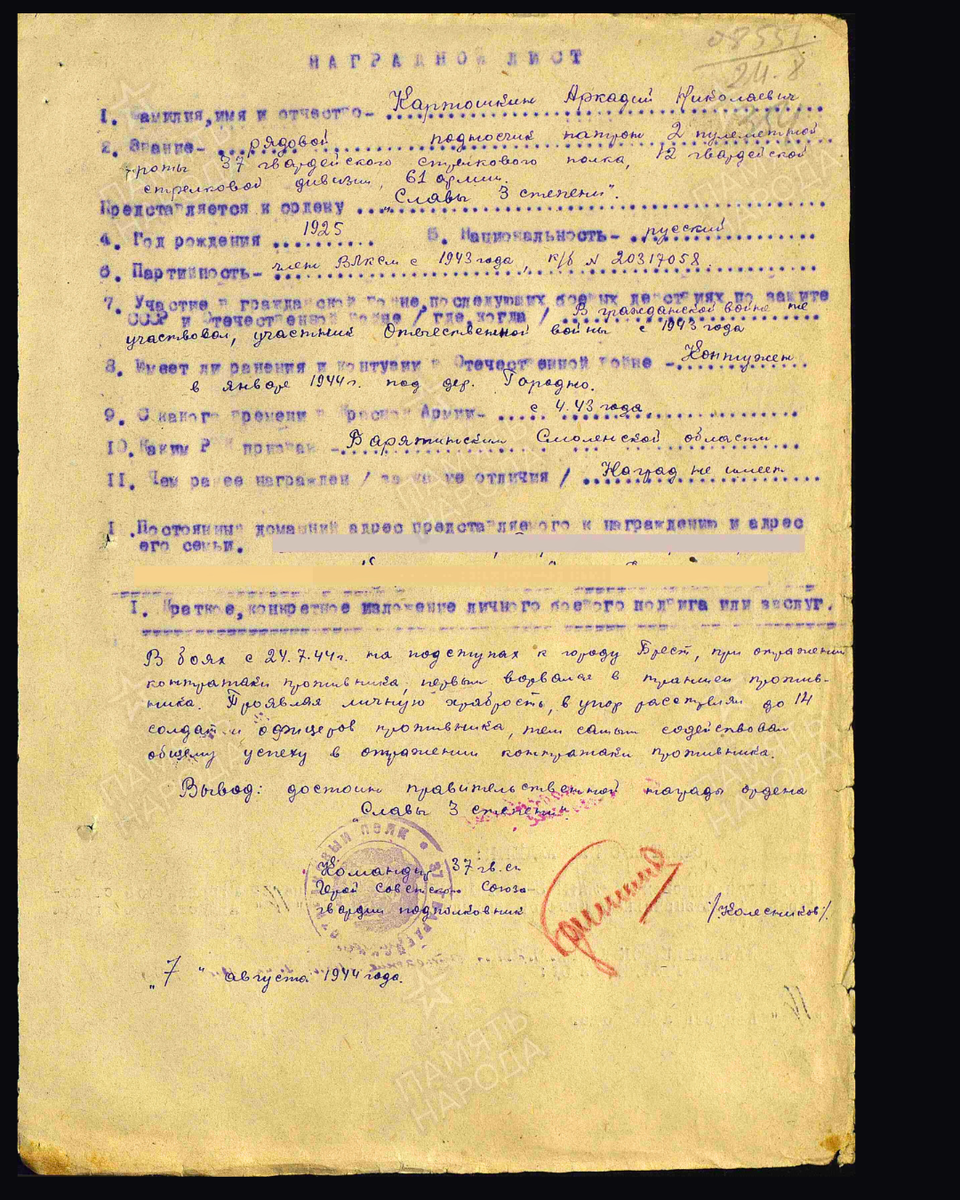 08551
24.8
НАГРАДНОЙ ЛИСТ
1. Фамилия, имя и отчество- Картошкин Аркадий Николаевич
2. Звание- рядовой подносчик патрон 2 пулеметной
роты 37 гвардейского стрелкового полка, 12 гвардейской
стрелковой дивизии, 61 армии.
Представляется к ордену „Славы 3 степени".
4. Год рождения 1925 5. Национальность- русский
6. Партийность- член ВЛКСМ с 1943 года, к/б N 20317058.
7. Участие в гражданской войне, последующих боевых действиях по защите
СССР и Отечественной войне / где, когда / В гражданской войне не
участвовал, участник Отечественной войны с 1943 года
8. Имеет ли ранения и контузии в Отечественной войне - Контужен
в январе 1944 г. под дер. Городно.
9. С какого времени в Красной Армии- с 4.43 года,
10. Каким РВК призван - Барятинским Смоленской области
11. Чем ранее награжден / за какие отличия / Наград не имеет
1 . Постоянный домашний адрес представляемого к награждению и адрес
его семьи.
1. Краткое, конкретное изложение личного боевого подвига или заслуг.
В боях с 24.7.44 г. на подступах к городу Брест, при отражении
контратаки противника, первым ворвался в траншеи против-
ника. Проявляя личную храбрость, в упор расстрелял до 14
солдат и офицеров противника, тем самым содействовал
общему успеху в отражении контратаки противника.
Вывод: достоин правительственной награды ордена
„Славы 3 степени".
Командир 37 гв. сп
Герой Советского Союза
гвардии подполковник /Колесников/.
„7" августа 1944 года.
ПАМЯТЬ
НАРОДА